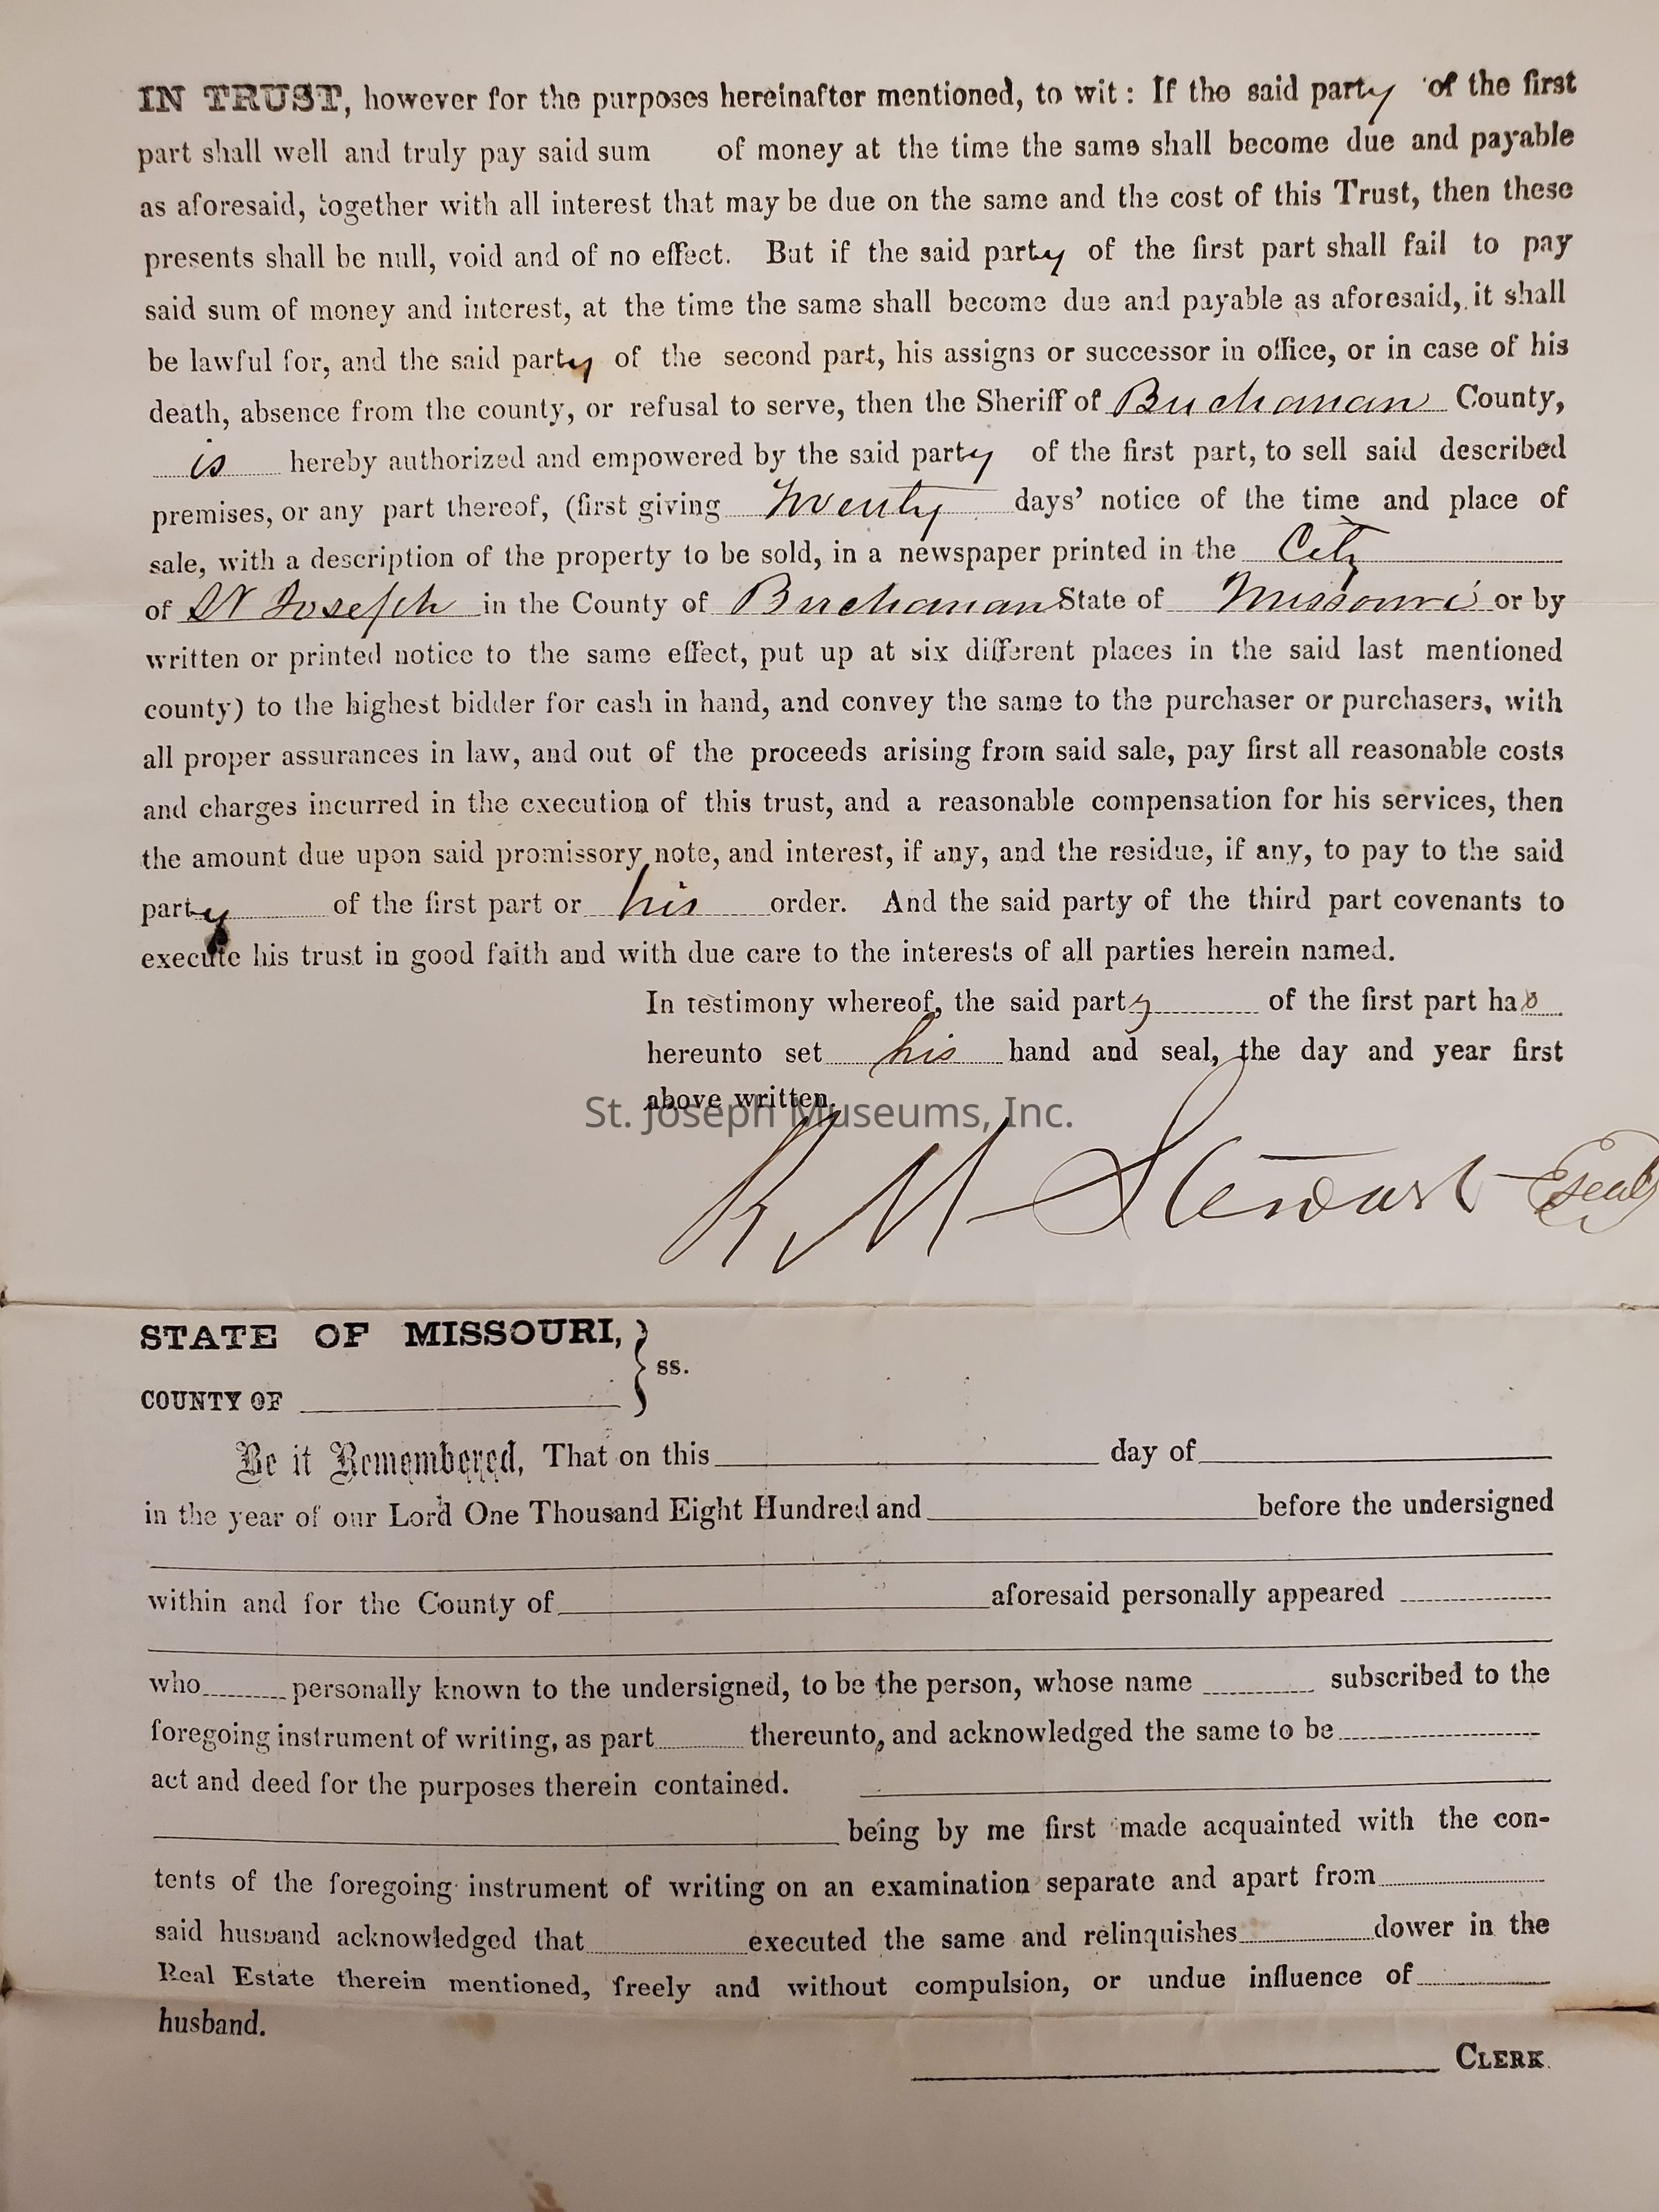 IN TRUST, however for the purposes hereinafter mentioned, to wit: If the said party of the first
part shall well and truly pay said sum of money at the time the same shall become due and payable
as aforesaid, together with all interest that may be due on the same and the cost of this Trust, then these
presents shall be null, void and of no effect. But if the said party of the first part shall fail to pay
said sum of money and interest, at the time the same shall become due and payable as aforesaid, it shall
be lawful for, and the said party of the second part, his assigns or successor in office, or in case of his
death, absence from the county, or refusal to serve, then the Sheriff of Buchanan County,
is hereby authorized and empowered by the said party of the first part, to sell said described
premises, or any part thereof, (first giving Twenty days' notice of the time and place of
sale, with a description of the property to be sold, in a newspaper printed in the City
of St Joseph in the County of Buchanan State of Missouri or by
written or printed notice to the same effect, put up at six different places in the said last mentioned
county) to the highest bidder for cash in hand, and convey the same to the purchaser or purchasers, with
all proper assurances in law, and out of the proceeds arising from said sale, pay first all reasonable costs
and charges incurred in the execution of this trust, and a reasonable compensation for his services, then
the amount due upon said promissory note, and interest, if any, and the residue, if any, to pay to the said
party of the first part or his order. And the said party of the third part covenants to
execute his trust in good faith and with due care to the interests of all parties herein named.
In testimony whereof, the said party of the first part has
hereunto set his hand and seal, the day and year first
above written.
St. Joseph Museums, Inc.
R M Stewart seal
STATE OF MISSOURI, } ss.
COUNTY OF
Be it Remembered, That on this day of
in the year of our Lord One Thousand Eight Hundred and before the undersigned
within and for the County of aforesaid personally appeared
who personally known to the undersigned, to be the person, whose name subscribed to the
foregoing instrument of writing, as part thereunto, and acknowledged the same to be
act and deed for the purposes therein contained.
being by me first made acquainted with the con-
tents of the foregoing instrument of writing on an examination separate and apart from
said husband acknowledged that executed the same and relinquishes dower in the
Real Estate therein mentioned, freely and without compulsion, or undue influence of
husband.
CLERK.